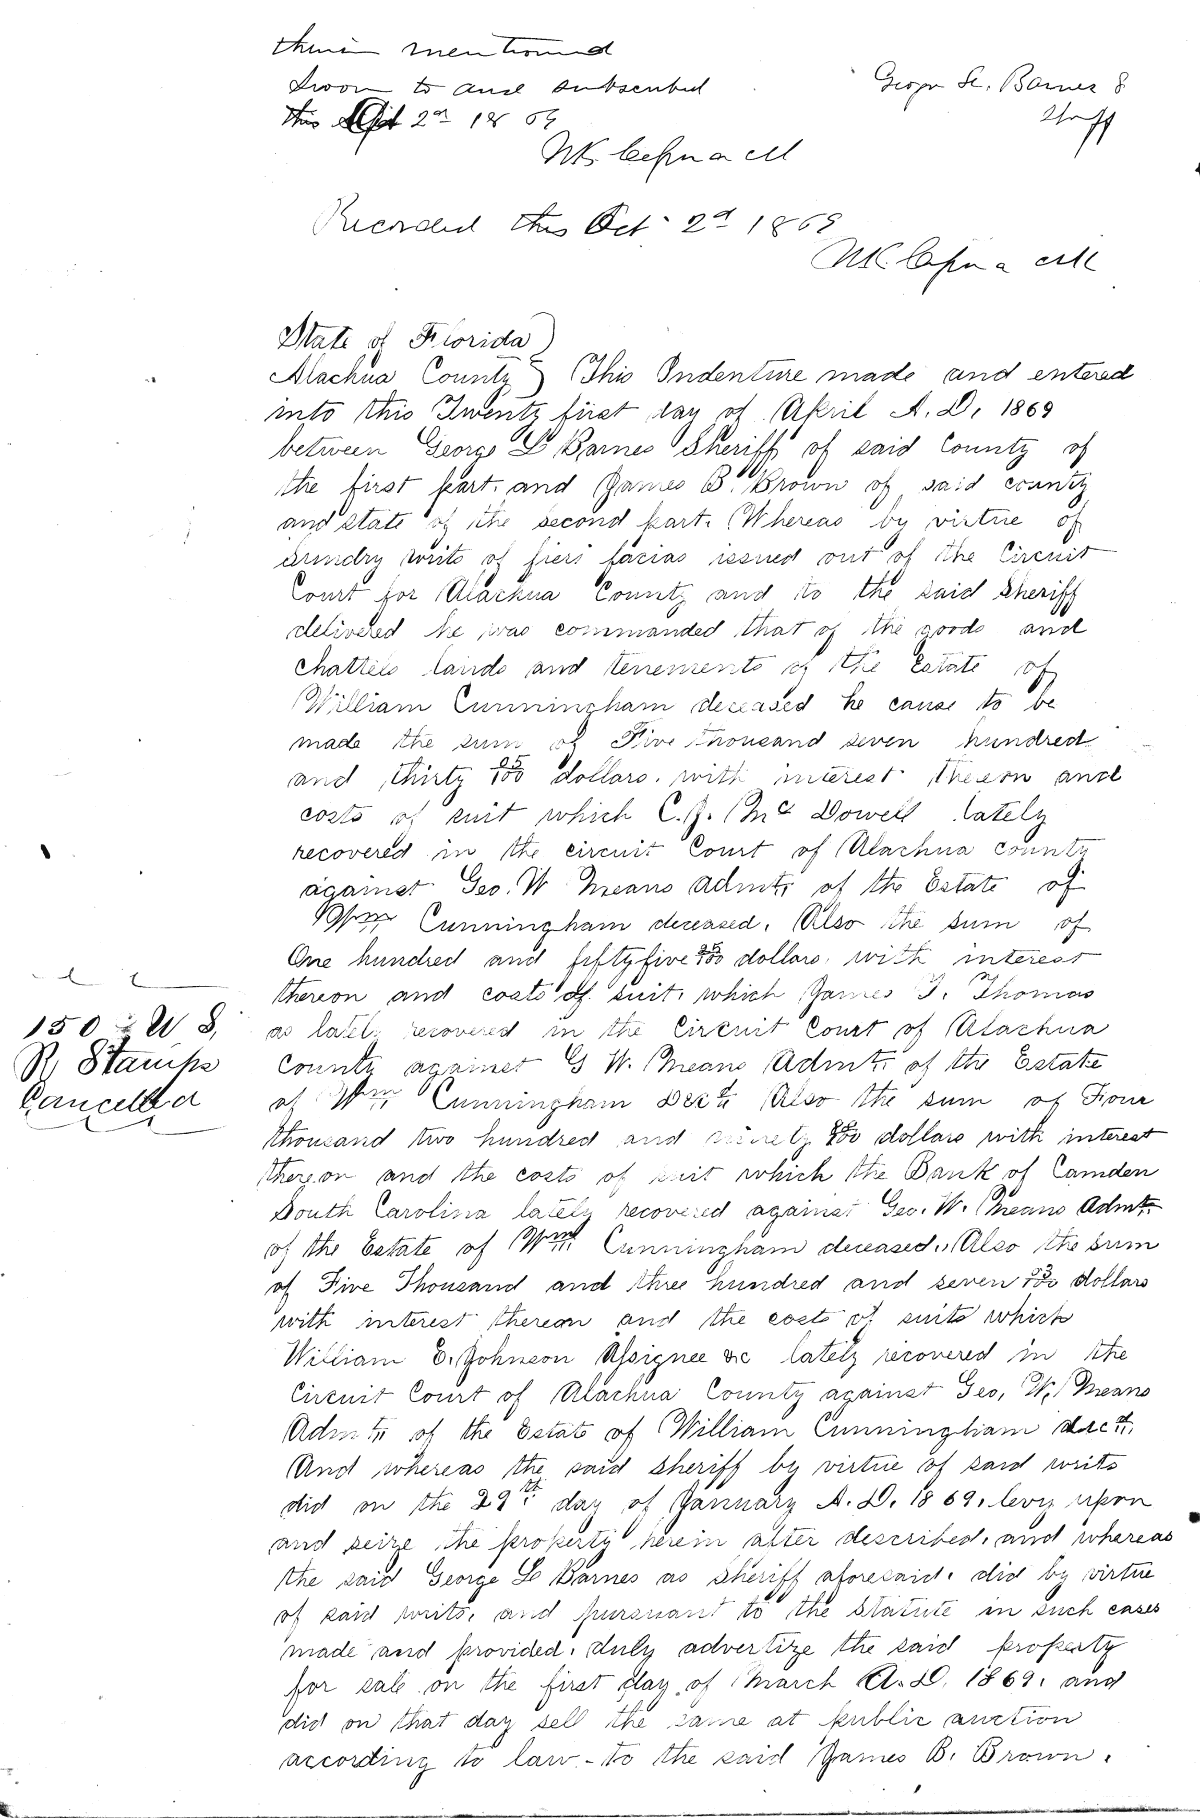 therein mentioned
Sworn to and subscribed
this Oct 2nd 1869
George L. Barnes S
Shff
Recorded this Oct 2d 1869
State of Florida )
Alachua County } This Indenture made and entered
into this Twenty first day of April A. D. 1869
between George L Barnes Sheriff of said County of
the first part. and James B. Brown of said county
and state of the second part. Whereas by virtue of
sundry writs of fieri facias issued out of the Circuit
Court for Alachua County and to the said Sheriff
delivered he was commanded that of the goods and
chattels lands and tenements of the Estate of
William Cunningham deceased he cause to be
made the sum of Five thousand seven hundred
and thirty 05/100 dollars. with interest thereon and
costs of suit which C. J. Mc Dowell lately
recovered in the circuit Court of Alachua county
against Geo. W Means Admtr of the Estate of
Wm Cunningham deceased. Also the sum of
One hundred and fifty five /100 dollars. with interest
thereon and costs of suit. which James T. Thomas
as lately recovered in the Circuit Court of Alachua
County against G W. Means Admtr of the Estate
of Wm Cunningham Decd. Also the sum of Four
thousand two hundred and ninety /100 dollars with interest
thereon and the costs of suit which the Bank of Camden
South Carolina lately recovered against Geo. W. Means Admtr
of the Estate of Wm Cunningham deceased. Also the sum
of Five Thousand and three hundred and seven /100 dollars
with interest thereon and the costs of suits which
William E. Johnson Assignee &c lately recovered in the
Circuit Court of Alachua County against Geo, W. Means
Admtr of the Estate of William Cunningham decd.
And whereas the said Sheriff by virtue of said writs
did on the 29th day of January A. D. 1869. levy upon
and seize the property herein after described. and whereas
the said George L Barnes as Sheriff aforesaid. did by virtue
of said writs. and pursuant to the Statute in such cases
made and provided. duly advertize the said property
for sale on the first day of March A. D. 1869. and
did on that day sell the same at public auction
according to law - to the said James B. Brown.
150 U S,
R Stamps
Cancelled